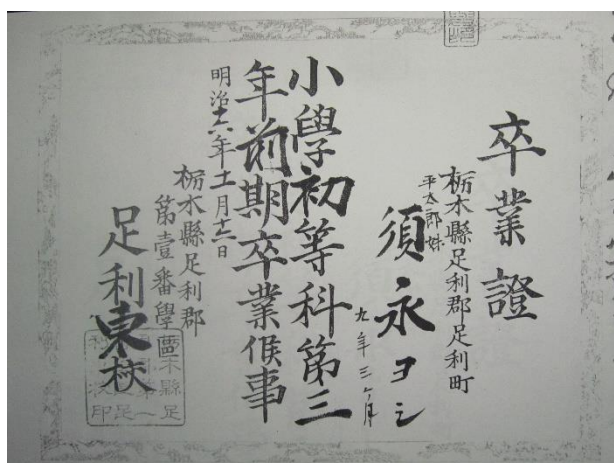 卒業證
栃木縣足利郡足利町
平太郎妹
須永ヨシ
九年三ヶ月
小學初等科第三
年前期卒業候事
明治十六年十一月日
栃木縣足利郡
第壹番學區
足利東校